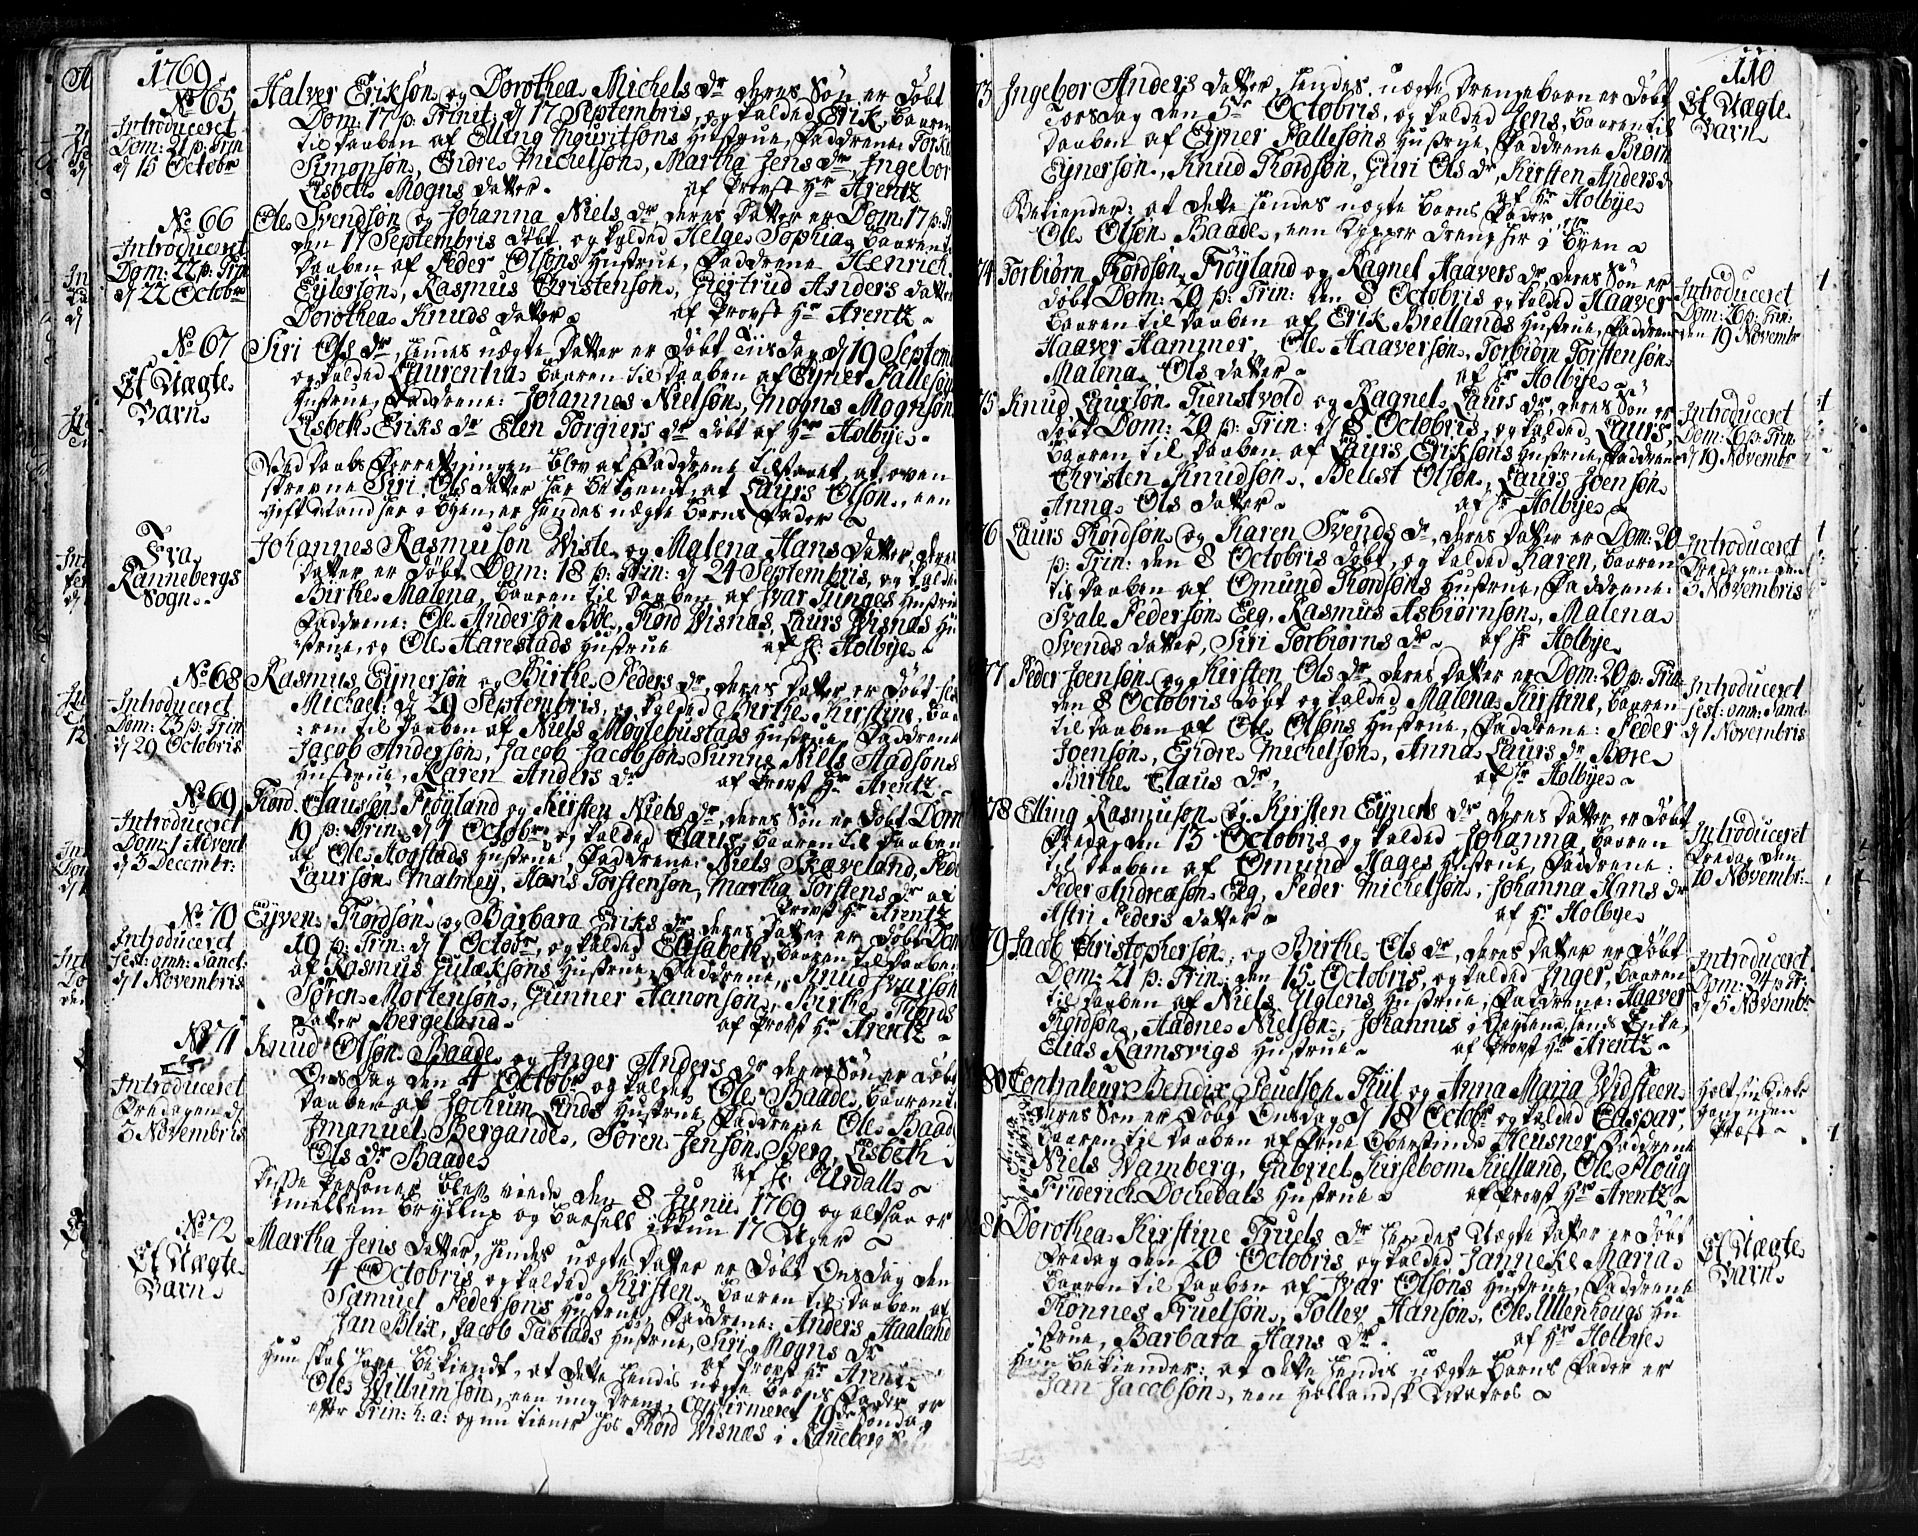 1769
No 65
Introduceret
Dom: 21 p: Trin
d 15 Octobr
Halver Erikson og Dorothea Michels dr deres Søn er døbt
Dom: 17 p: Trinit: d 17 Septembris, og kalded Erik, baaren
til daaben af Elling Mouritsøns Hustrue, Faddrene Torkel
Simonsøn, Endre Michelsøn, Martha Jens dr, Ingebor
Lisbeth Mogns datter. af Provst Hr Arentz
No 66
Introduceret
Dom: 22 p: Trin
d 22 Octobr
Ole Svendsøn og Johanna Niels dr deres datter er Dom: 17 p: Tr
den 17 Septembris døbt, og kalded Helge Sophia, baaren til
daaben af Peder Olsøns Hustrue, Faddrene Henrich
Eylersøn, Rasmus Christensøn, Giertrud Anders datter
Dorothea Knuds datter af Provst Hr Arentz
No 67
Et Uægte
Barn
Siri Ols dr, hendes uægte datter er døbt Tiisdag d 19 Septemb
og kalded Laurentia baaren til daaben af Eyner Pallesøns
Hustrue, Faddrene: Johannes Nielsøn, Mogns Mognsøn
Lisbeth Eriks dr Elen Torgiers dr døbt af Hr Holbye
Ved daabs Forretningen blev af Faddrene tilstaaet, at oven
skrevne Siri Ols datter har bekiendt, at Laurs Olsøn, een
gift Mand her i Byen, er hendes uægte barns Fader
Fra
Rannebergs
Sogn
Johannes Rasmuson Wiste og Malena Hans datter, deres
datter er døbt Dom: 18 p: Trin: d 24 Septembris, og kalded
Birthe Malena, baaren til daaben af Ivar Tunges Hustrue
Faddrene: Ole Andersøn Boe, Thord Wisnæs, Laurs Wisnæs Hu
strue, og Ole Harestads Hustrue af Hr: Holbye
No 68
Introduceret
Dom: 23 p: Trin
d 29 Octobris
Rasmus Eynersøn og Birthe Peders dr, deres datter er døbt fest
Michael: d 29 Septembris, og kalded Birthe Kirstine, baa
ren til daaben af Niels Møglebustads Hustrue, Faddrene
Jacob Andersøn, Jacob Jacobsøn Sunne Niels Madsøns
Hustrue, Karen Anders dr af Provst Hr Arentz
No 69
Introduceret
Dom: 1 Advent
d 3 Decembr:
Thord Clausøn Frøyland og Kirsten Niels dr, deres Søn er døbt Dom
19 p: Trin: d 1 Octobr og kalded Claus, baaren til daaben
af Ole Hogstads Hustrue Faddrene: Niels Skæveland, Peder
Laursøn Malmey, Hans Torstensøn, Martha Torstens dr af
Provst Hr Arentz
No 70
Introduceret
fest: omn: Sanct
d 1 Novembris
Eyven Thordsøn og Barbara Eriks dr deres datter er døbt Dom
19 p: Trin: d 1 Octobr, og kalded Elisabeth, baaren til daaben
af Rasmus Gulaksøns Hustrue, Faddrene, Knud Ivarsøn
Søren Mortensøn, Gunner Aanonsøn, Birthe Thords
datter Bergeland af Provst Hr Arentz
No 71
Introduceret
Fredagen d
3 Novembris
Knud Olsøn Baade og Inger Anders dr deres Søn er døbt
Onsdag den 4 Octobr og kaldet Ole Baade, baaren til
daaben af Jochum Linds Hustrue Faddrene Ole Baade
Imanuel Bergande, Søren Jensøn Berg, Lisbeth
Ols dr Baade af Hr: Urdall
Disse Personer blev viede den 8 Junii 1769 og altsaa er
imellem bryllup og barsell ikkun 17 Uger
No 72
Et Uægte
Barn
Martha Jens datter, hendes uægte datter er døbt Onsdag den
4 Octobris og kalded Kirsten, baaren til daaben af
Samuel Pedersøns Hustrue, Faddrene: Anders Haaland
Jan Blix, Jacob Tastads Hustrue, Siri Mogns dr
af Provst Hr Arentz
Hun skal have bekiendt, at dette hendis uægte barns Fader er
Ole Willumsøn, een ung dreng, confirmeret 19de Søndag
efter Trin: h: a: og nu tiener hos Thord Wisnæs i Raneberg
110
73
Et Uægte
Barn
Ingebor Anders datter, hendes uægte drengebarn er døbt
Torsdag den 5te Octobris, og kalded Jens, baaren til
daaben af Eyner Pallesøns Hustrue, Faddrene Biørn
Eynersøn, Knud Thordsøn, Guri Ols dr, Kirsten Anders d
af Hr Holbye
Bekiender: at dette hendes uægte barns Fader er
Ole Olsøn Baade, een dreng her i Byen
74
Introduceret
Dom: 26 p: Trin:
den 19 Novembr
Torbiørn Thordsøn Frøyland og Ragnel Haavers dr, deres Søn er
døbt Dom: 20 p: Trin: den 8 Octobris og kalded Haaver
baaren til daaben af Erik Biellands Hustrue, Faddrene
Haaver Hammer, Ole Haaversøn, Torbiørn Torstensøn
Malena Ols datter af Hr Holbye
75
Introduceret
Dom: 26 p: Trin
d 19 Novembr
Knud Laursøn Tienstvold og Ragnel Laurs dr, deres Søn er
døbt Dom: 20 p: Trin: d 8 Octobris, og kalded Laurs,
baaren til daaben af Laurs Eriksøns Hustrue, Faddrene
Christen Knudsøn, Belest Olsøn, Laurs Joensøn
Anna Ols datter af Hr Holbye
76
Introduceret
Fredagen den
3 Novembris
Laurs Thordsøn og Karen Svends dr, deres datter er Dom: 20
p: Trin: den 8 Octobris døbt, og kalded Karen, baaren
til daaben af Omund Thordsøns Hustrue, Faddrene:
Svale Pedersøn Eeg, Rasmus Asbiørnsøn, Malena
Svends datter, Siri Torbiørns dr af Hr Holbye
77
Introduceret
fest: omn: Sanct
d 1 Novembris
Peder Joensøn og Kirsten Ols dr, deres datter er Dom: 20 p: Trin
den 8 Octobris døbt og kalded Malena Kirstine, baaren
til daaben af Ole Olsøns Hustrue, Faddrene: Peder
Joensøn, Endre Michelsøn, Anna Laurs dr Bore
Birthe Claus dr, af Hr Holbye
78
Introduceret
Fredag den
10 Novembr
Elling Rasmuson og Kirsten Eyners dr, deres datter er døbt
Fredag den 13 Octobris og kalded Johanna, baaren
til daaben af Omund Hages Hustrue, Faddrene:
Peder Andreæsøn Eeg, Peder Michelsøn, Johanna Hans dr
Astri Peders datter af Hr Holbye
79
Introduceret
Dom: 24 p: Tr:
d 5 Novembr
Jacob Christophersøn, og Birthe Ols dr, deres datter er døbt
Dom: 21 p: Trin: den 15 Octobris, og kalded Inger, baaren
til daaben af Niels Uglens Hustrue, Faddrene: Haaver
Thordsøn, Aadne Nielsøn, Johannis i Enke,
Elias Ramsvigs Hustrue af Provst Hr Arentz
80
Holt sin Kirke
gang uden
Præst
Contraleur Bendix Pouelsøn Kiil og Anna Maria Widsteen
deres Søn er døbt Onsdag d 18 Octobr og kalded Caspar,
baaren til daaben af Frue Oberstinde Heusner, Faddrene
Niels Wamberg, Gabriel Kirsebom Kielland, Ole Ploug
Friderich Dochedals Hustrue af Provst Hr Arentz
81
Et Uægte
Barn
Dorothea Kirstine Truels dr hendes Uægte datter er døbt
Fredag den 20 Octobris og kalded Janneke Maria
baaren til daaben af Ivar Olsøns Hustrue, Faddrene
Thonnes Truelsøn, Tollev Hansøn, Ole Ullenhougs Hu
strue, Barbara Hans dr af Hr Holbye
Hun bekiender: at dette hendis uægte barns Fader er
Jan Jacobsøn, een Hollandsk Matros